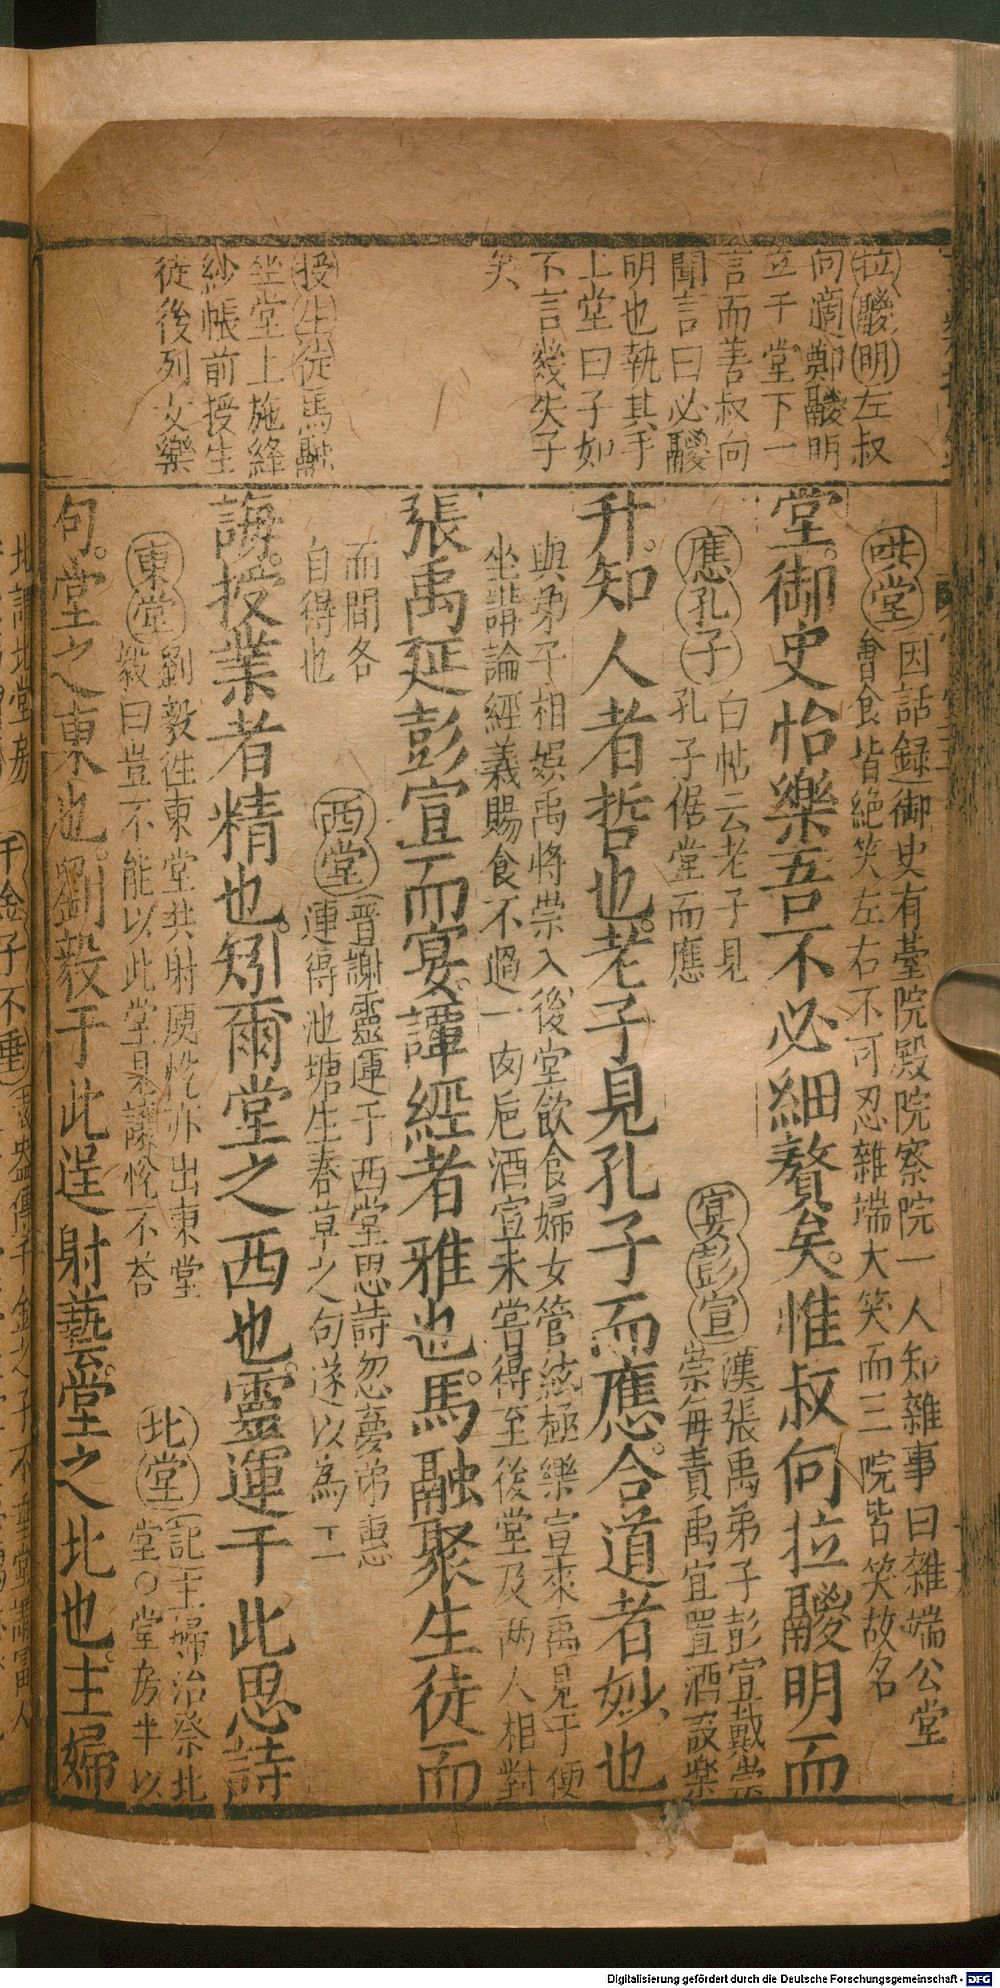 拉鬷明左叔
向適鄭鬷明
立于堂下一
言而善叔向
聞言曰必鬷
明也執其手
上堂曰子如
不言幾失子
矣
授生徒馬融
坐堂上施絳
紗帳前授生
徒後列女樂
哄堂因話録御史有臺院殿院察院一人知雜事曰雜端公堂
㑹食皆絶笑左右不可忍雜端大笑而三院皆笑故名
堂御史怡樂吾不必細贅矣惟叔向拉鬷明而
應孔子白帖云老子見
孔子倨堂而應
宴彭宣漢張禹弟子彭宣戴崇
崇每責禹宜置酒設樂
升知人者哲也老子見孔子而應合道者妙也
與弟子相娱禹將崇入後堂飲食婦女管絃極樂宣來禹見于便
坐講論經義賜食不過一肉巵酒宣未嘗得至後堂及两人相對
張禹延彭宣而宴譚經者雅也馬融聚生徒而
而聞各
自得也
西堂晋謝靈運于西堂思詩忽夢弟惠
連得池塘生春草之句遂以為工
誨授業者精也矧爾堂之西也靈運于此思詩
東堂劉毅徃東堂共射庾恱亦出東堂
毅曰豈不能以此堂見讓恱不荅
北堂記主婦治祭北
堂○堂房半以
句堂之東也劉毅于此逞射藝堂之北也主婦
Digitalisierung gefördert durch die Deutsche Forschungsgemeinschaft - DFG